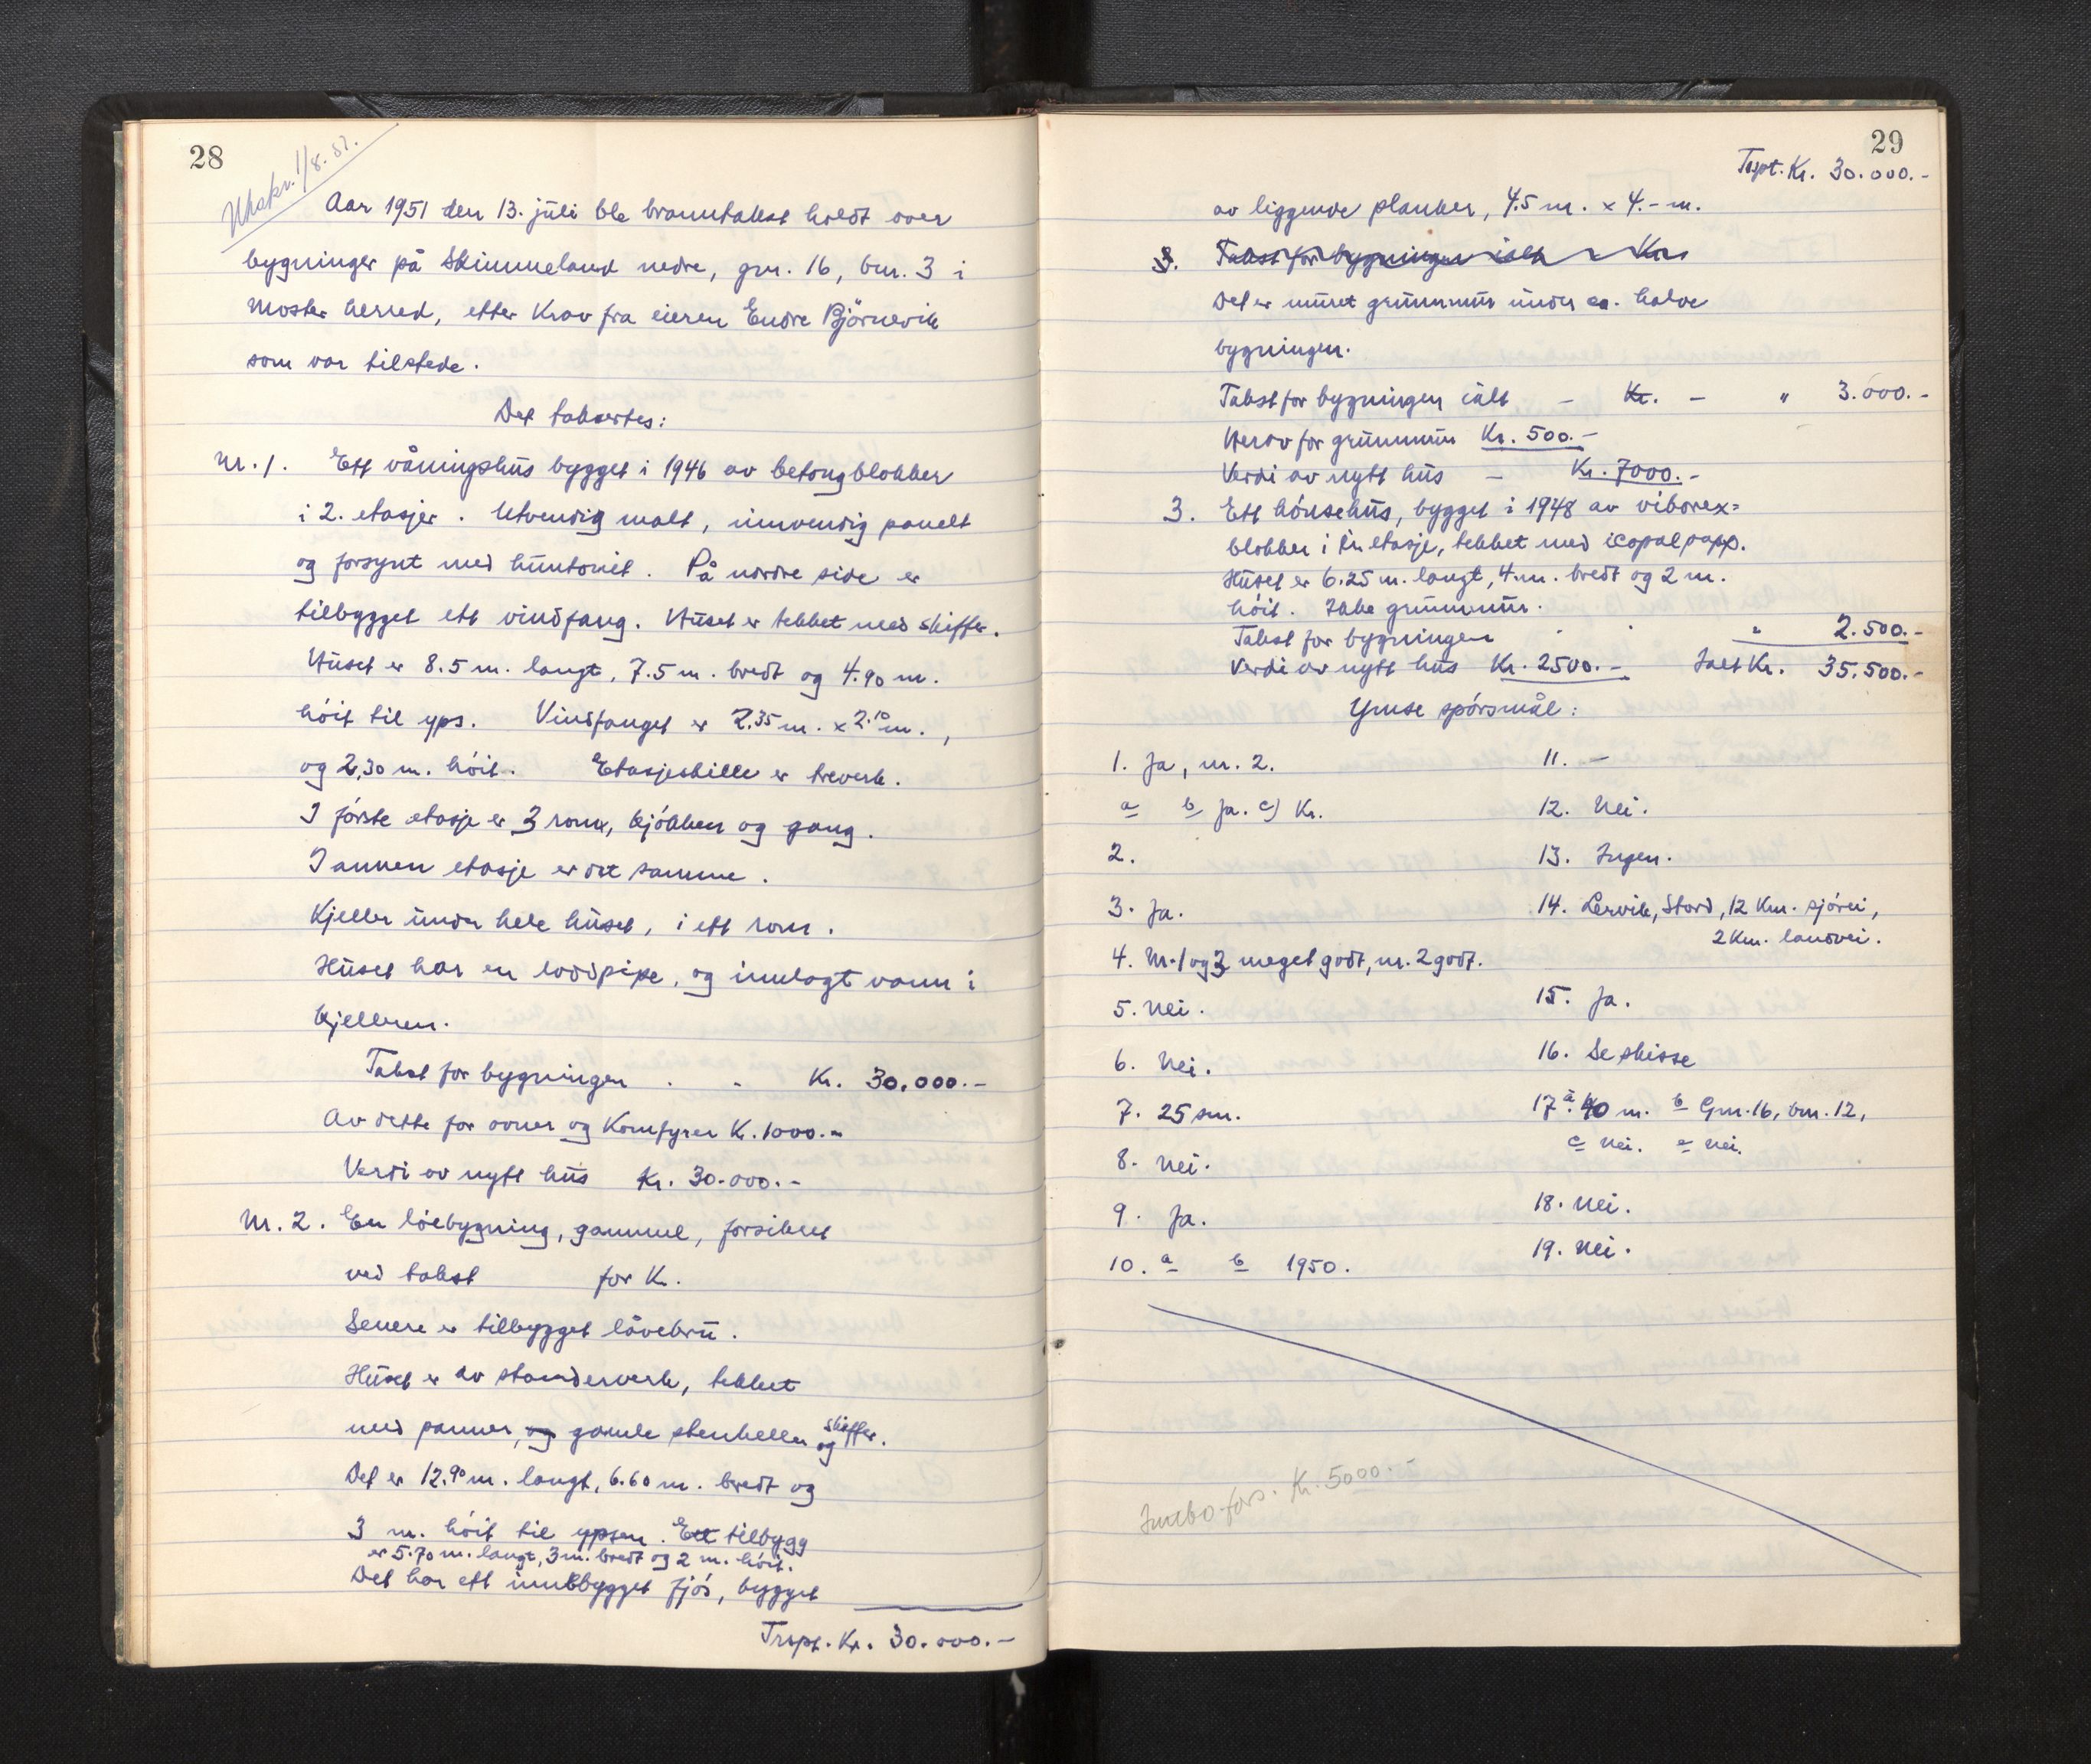 28
Utskr. 1/8. 51.
Aar 1951 den 13. juli ble branntakst holdt over
bygninger på Skimmeland nedre, gnr. 16, bnr. 3 i
Moster herred, etter krav fra eieren Endre Björnevik
som var tilstede.
Det taksertes:
Nr. 1. Ett våningshus bygget i 1946 av betongblokker
i 2. etasjer. Utvendig malt, innvendig panelt
og forsynt med huntonit. På nordre side er
tilbygget ett vindfang. Huset er tekket med skiffer.
Huset er 8.5 m. langt, 7.5 m. bredt og 4.90 m.
höit til yps. Vindfanget er 2.35 m. x 2.10 m.,
og 2,30 m. höit. Etasjeskille er treverk.
I förste etasje er 3 rom, kjökken og gang.
I annen etasje er det samme.
Kjeller under hele huset, i ett rom.
Huset har en loddpipe, og innlagt vann i
kjelleren.
Takst for bygningen . . Kr. 30.000.-
Av dette for ovner og Komfyrer Kr. 1000.-
Verdi av nytt hus Kr. 30.000.-
Nr. 2. En löebygning, gammel, forsikret
ved takst for Kr.
Senere er tilbygget låvebru.
Huset er av standerverk, tekket
med panner, og gamle stenheller og skiffer.
Det er 12.90 m. langt, 6.60 m. bredt og
3 m. höit til ypsen. Ett tilbygg
er 5.70 m. langt, 3 m. bredt og 2 m. höit.
Det har ett innbygget fjös, bygget
Trspt. Kr. 30.000.-
29
Trspt. Kr. 30.000.-
av liggende planker, 4.5 m. x 4.- m.
3. Takst for bygningen ialt - Kr.
Det er muret grunnmur under ca. halve
bygningen.
Takst for bygningen ialt - Kr. - " 3.000.-
Herav for grunnmur Kr. 500.-
Verdi av nytt hus - Kr. 7000.-
3. Ett hönsehus, bygget i 1948 av viborex=
blokker i en etasje, tekket med icopal papp.
Huset er 6.25 m. langt, 4 m. bredt og 2 m.
höit. Ikke grunnmur.
Takst for bygningen . . " 2.500.-
Verdi av nytt hus Kr. 2500.- Ialt Kr. 35.500.-
Ymse spörsmål:
1. Ja, nr. 2.
a b Ja. c) Kr.
2.
3. Ja.
4. Nr. 1 og 3 meget godt, nr. 2 godt.
5. Nei.
6. Nei.
7. 25 sm.
8. Nei.
9. Ja.
10. a b 1950.
11. -
12. Nei.
13. Ingen.
14. Lervik, Stord, 12 Km. sjövei,
2 Km. landvei.
15. Ja.
16. Se skisse
17. a 40 m. b Gnr. 16, bnr. 12,
c Nei. e Nei.
18. Nei.
19. Nei.
Jumbo-fors. Kr. 5000.-